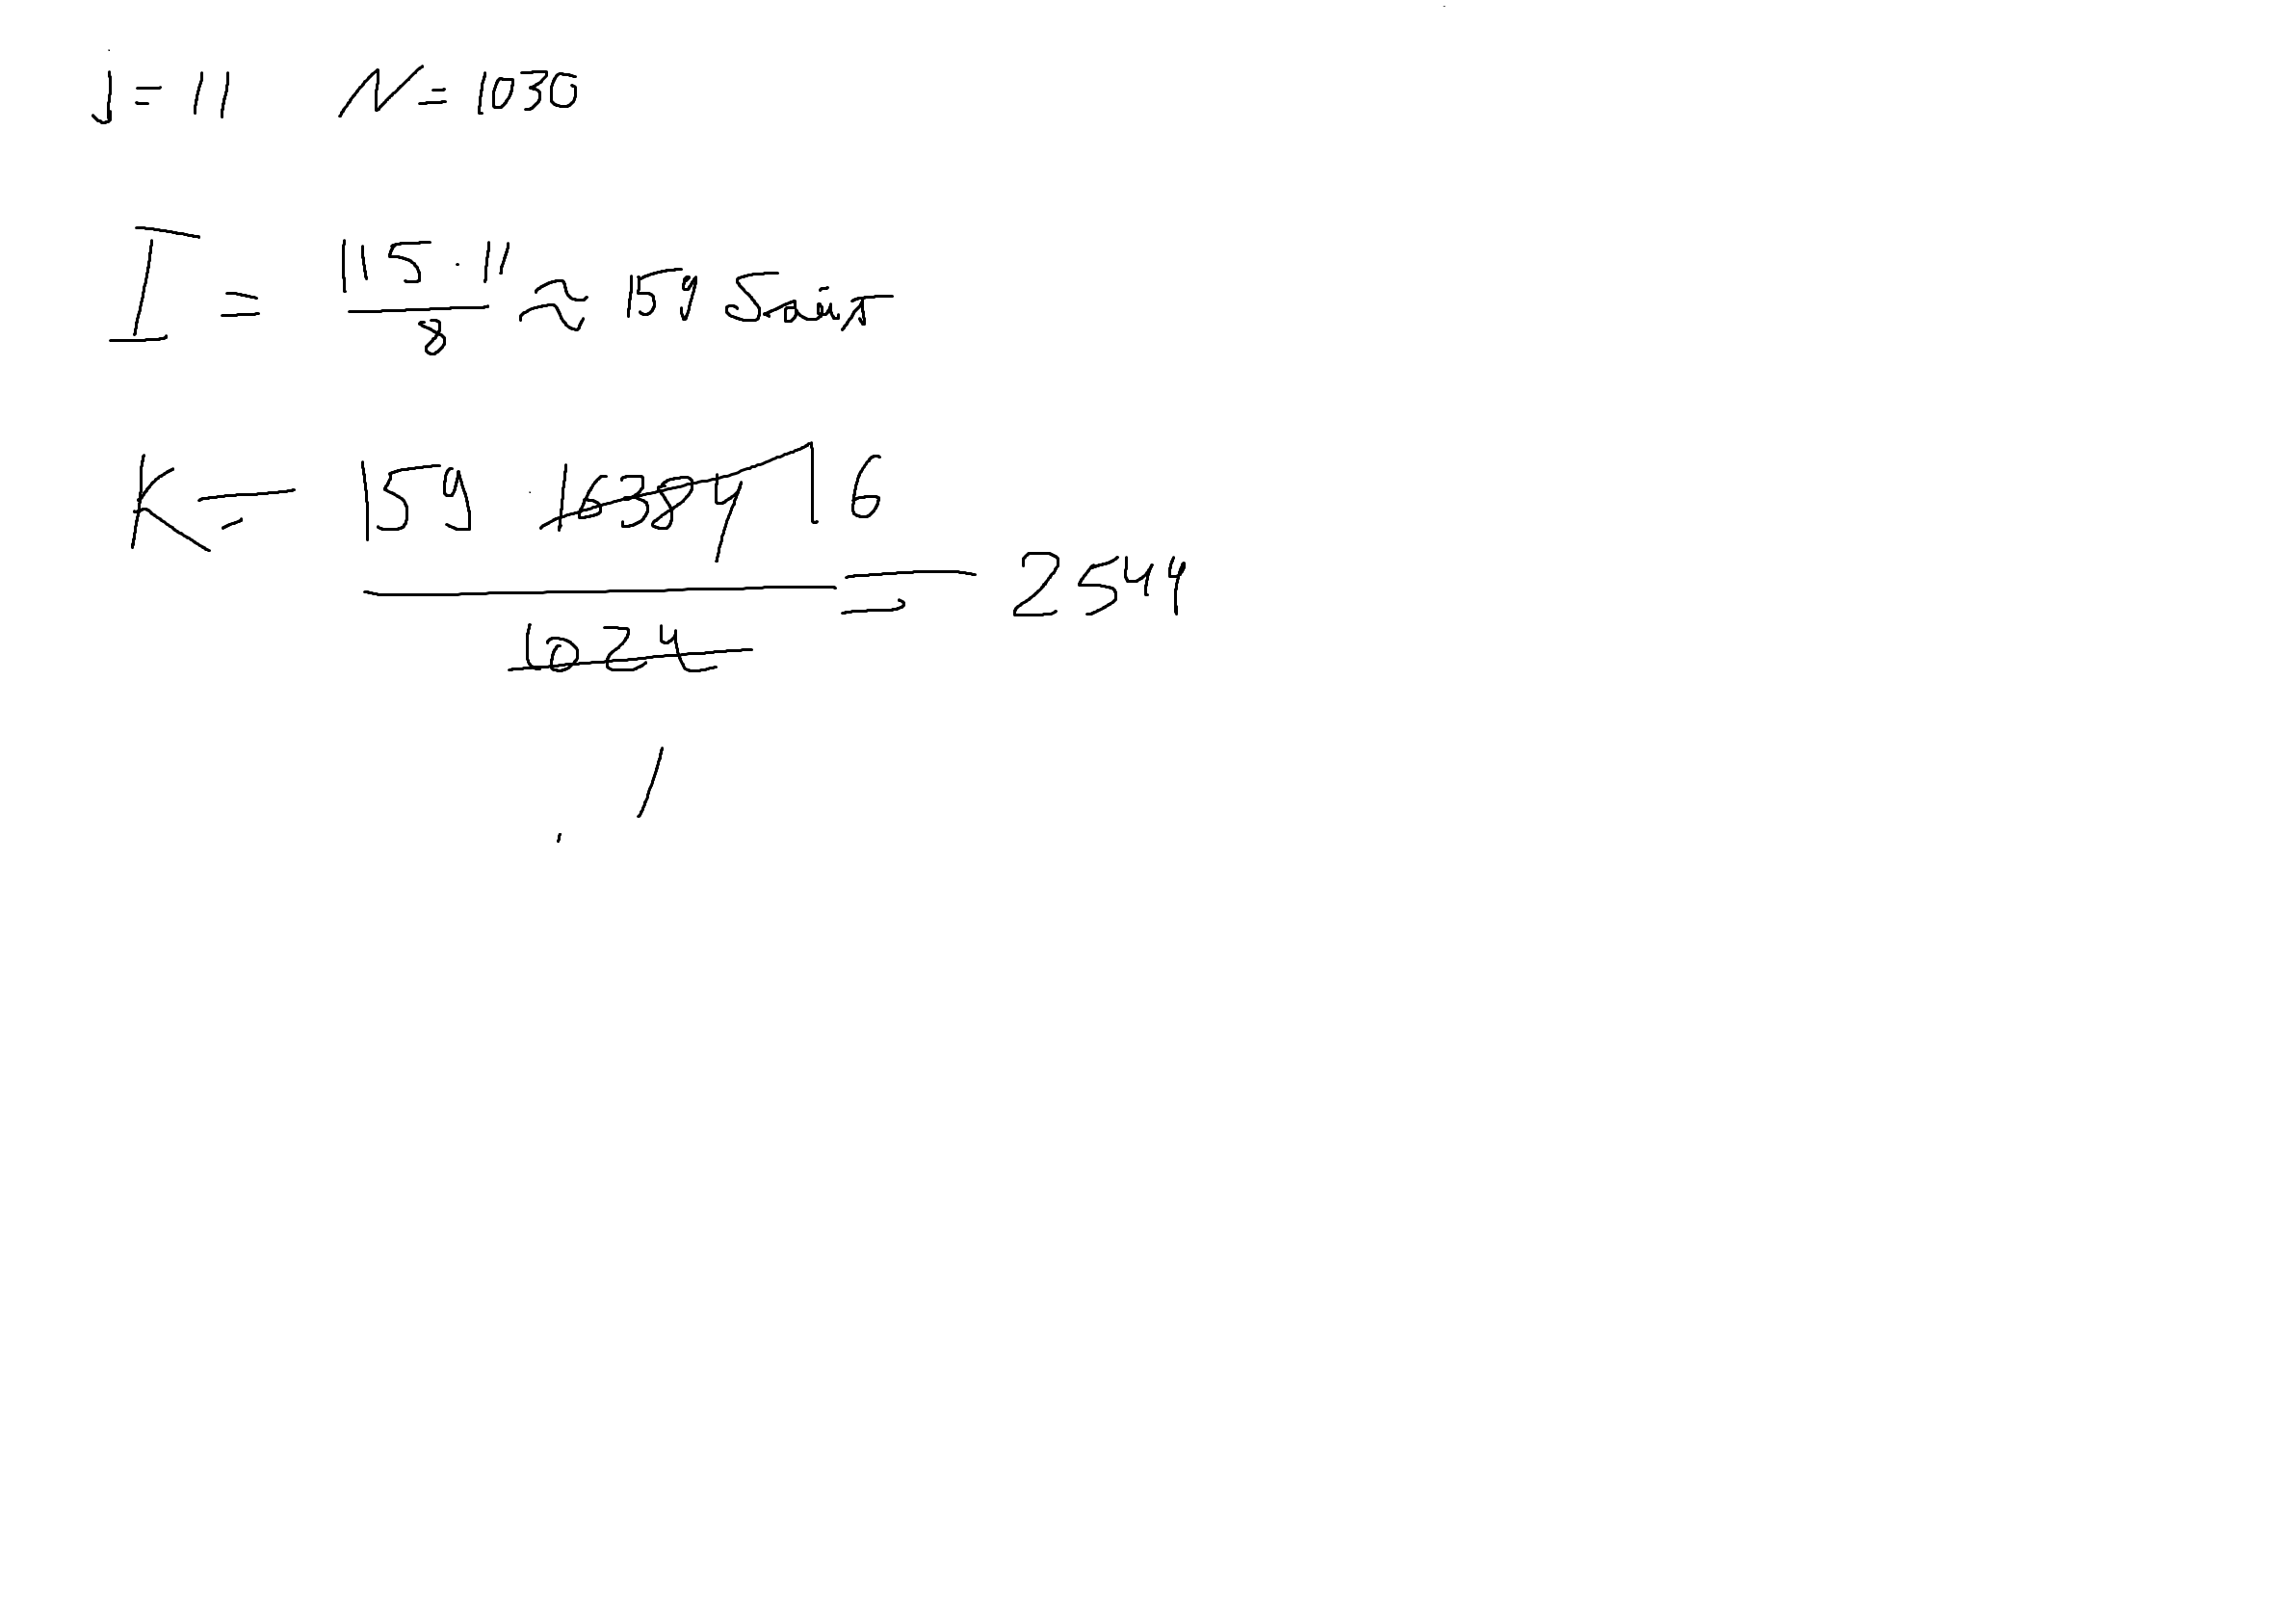 j = 11 N = 1030
I = 115 · 11 / 8 ≈ 159 байт
K = 159 · 16384 16 / 1024 = 2544